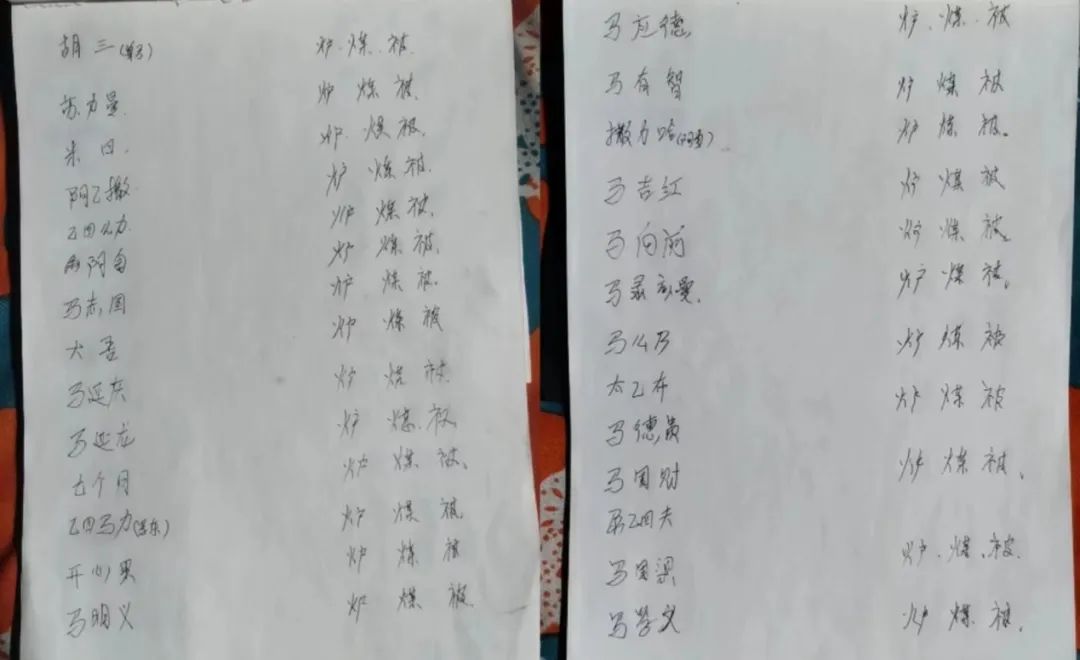 胡三 炉.煤.被
苏力曼 炉 煤 被
米四. 炉.煤被.
阿乙撒 炉 煤被.
乙四力 炉 煤被.
炉 煤被.
马志国 炉 煤被.
大吾 炉 煤 被
马延庆 炉 煤 被
马延龙 炉 煤.被
七个月 炉 煤 被.
乙四马力 炉 煤 被.
开心果 炉 煤 被
马明义 炉 煤 被
马应德 炉.煤.被
马有智 炉 煤 被
撒力哈 炉 煤 被.
马吉红 炉 煤 被
马向前 炉 煤 被.
马 炉 煤 被.
马么乃 炉 煤 被
太乙布 炉 煤 被
马德员
马国财 炉 煤 被.
乙四夫
马国梁 炉.煤.被.
马学文 炉 煤 被.